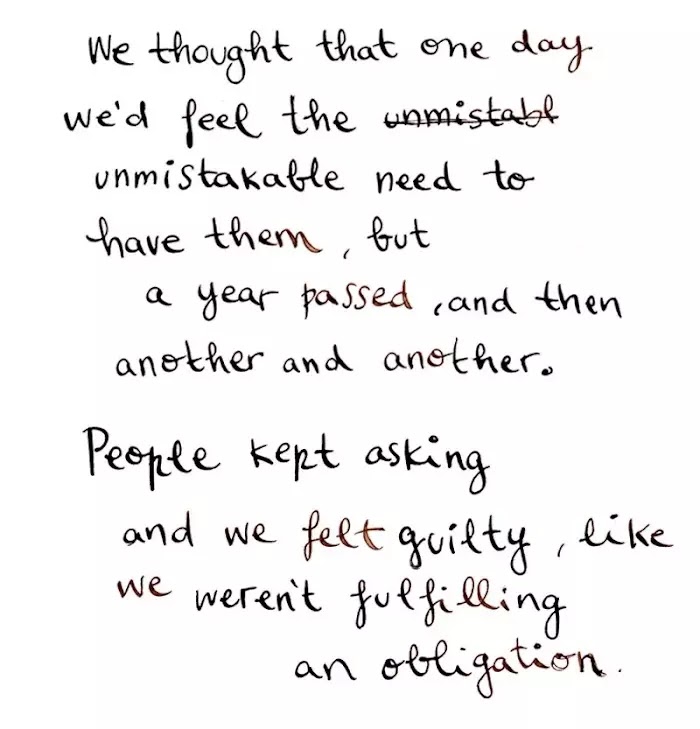 We thought that one day
we'd feel the unmistabl
unmistakable need to
have them, but
a year passed, and then
another and another.
People kept asking
and we felt guilty, like
we weren't fulfilling
an obligation.